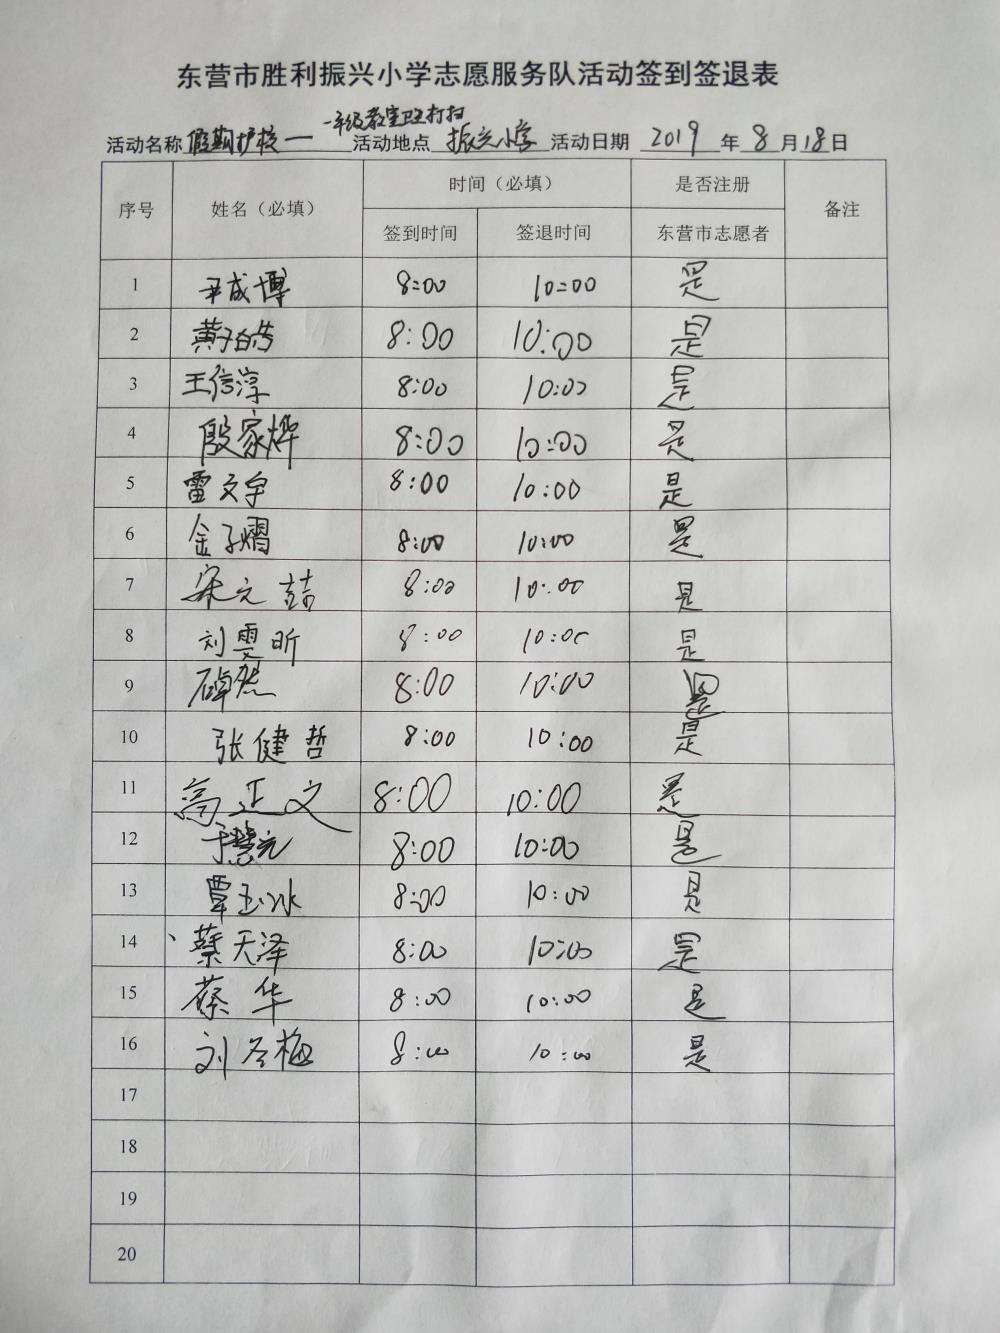 东营市胜利振兴小学志愿服务队活动签到签退表
一年级教室卫生打扫
活动名称 假期护校一 活动地点 振兴小学 活动日期 2019 年 8 月 18 日
序号 姓名（必填） 时间（必填） 是否注册 备注
签到时间 签退时间 东营市志愿者
1 尹成博 8:00 10:00 是
2 黄 8:00 10:00 是
3 王信淳 8:00 10:00 是
4 殷家烨 8:00 10:00 是
5 雷文宇 8:00 10:00 是
6 金子熠 8:00 10:00 是
7 宋元喆 8:00 10:00 是
8 刘雯昕 8:00 10:00 是
9 8:00 10:00 是
10 张健哲 8:00 10:00 是
11 高正文 8:00 10:00 是
12 于慧元 8:00 10:00 是
13 覃玉冰 8:00 10:00 是
14 蔡天泽 8:00 10:00 是
15 蔡华 8:00 10:00 是
16 刘冬梅 8:00 10:00 是
17
18
19
20